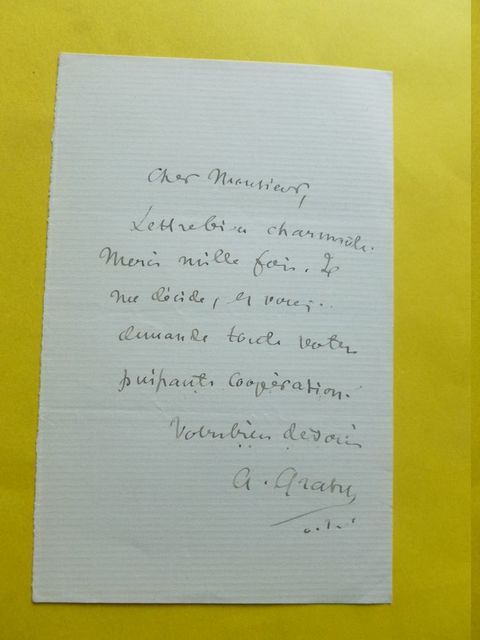 Cher Monsieur,
Lettre bien charmante.
Merci mille fois. Je
me décide, et vous
demande toute votre
puissante coopération.
Votre bien dévoué
A.